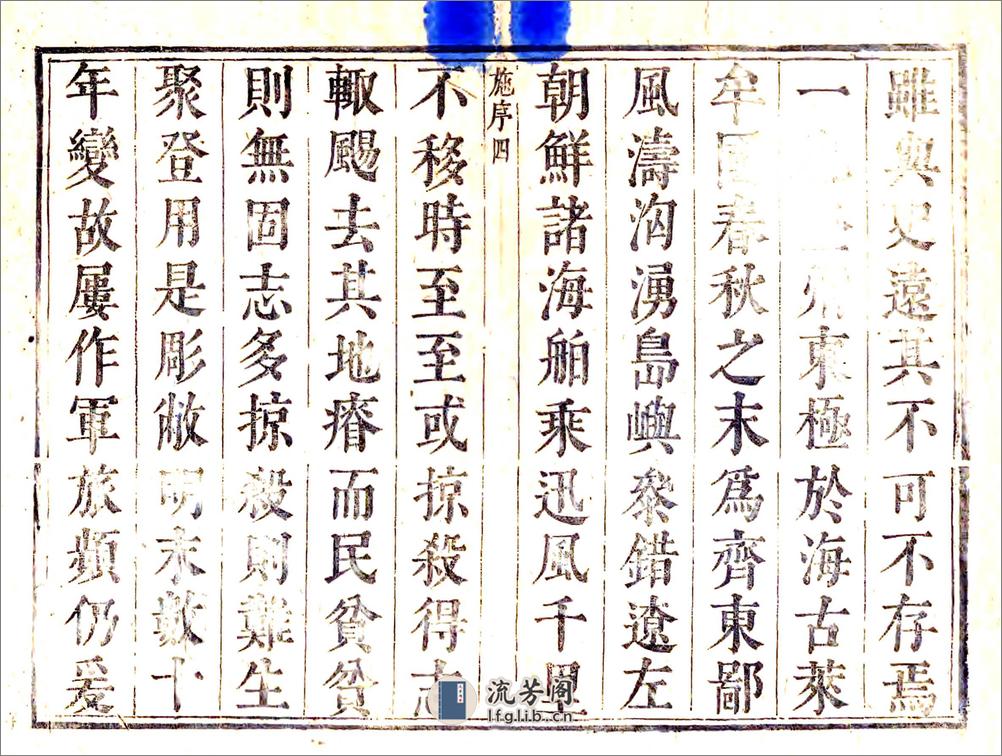 雖與史遠其不可不存焉
一州東極於海古萊
牟國春秋之末爲齊東鄙
風濤洶湧島嶼叅錯遼左
朝鮮諸海舶乘迅風千里
施序 四
不移時至至或掠殺得志
輙颺去其地瘠而民貧貧
則無固志多掠殺則難生
聚登用是彫敝明末數十
年變故屢作軍旅頻仍爰
流芳阁
lfglib.cn